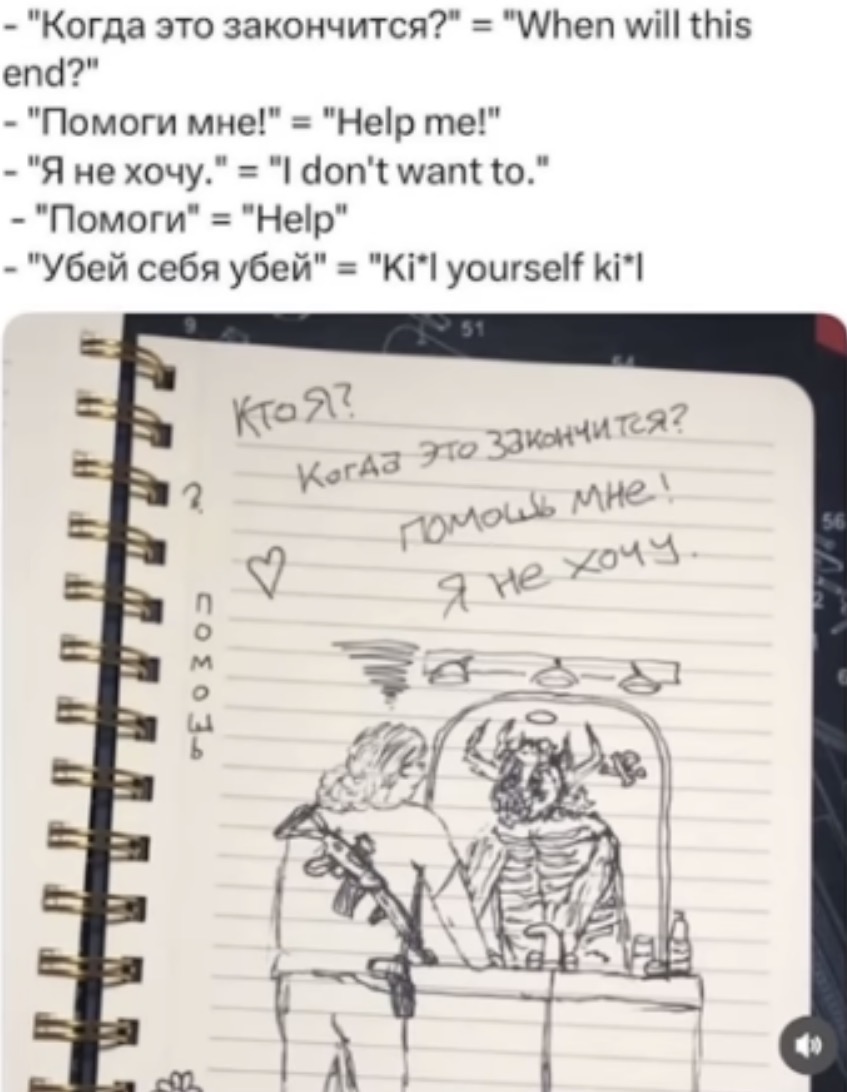 - "Когда это закончится?" = "When will this
end?"
- "Помоги мне!" = "Help me!"
- "Я не хочу." = "I don't want to."
- "Помоги" = "Help"
- "Убей себя убей" = "Ki*l yourself ki*l
9
51
Кто Я?
Когда это закончится?
?
помошь мне!
56
Я не хочу.
помошь